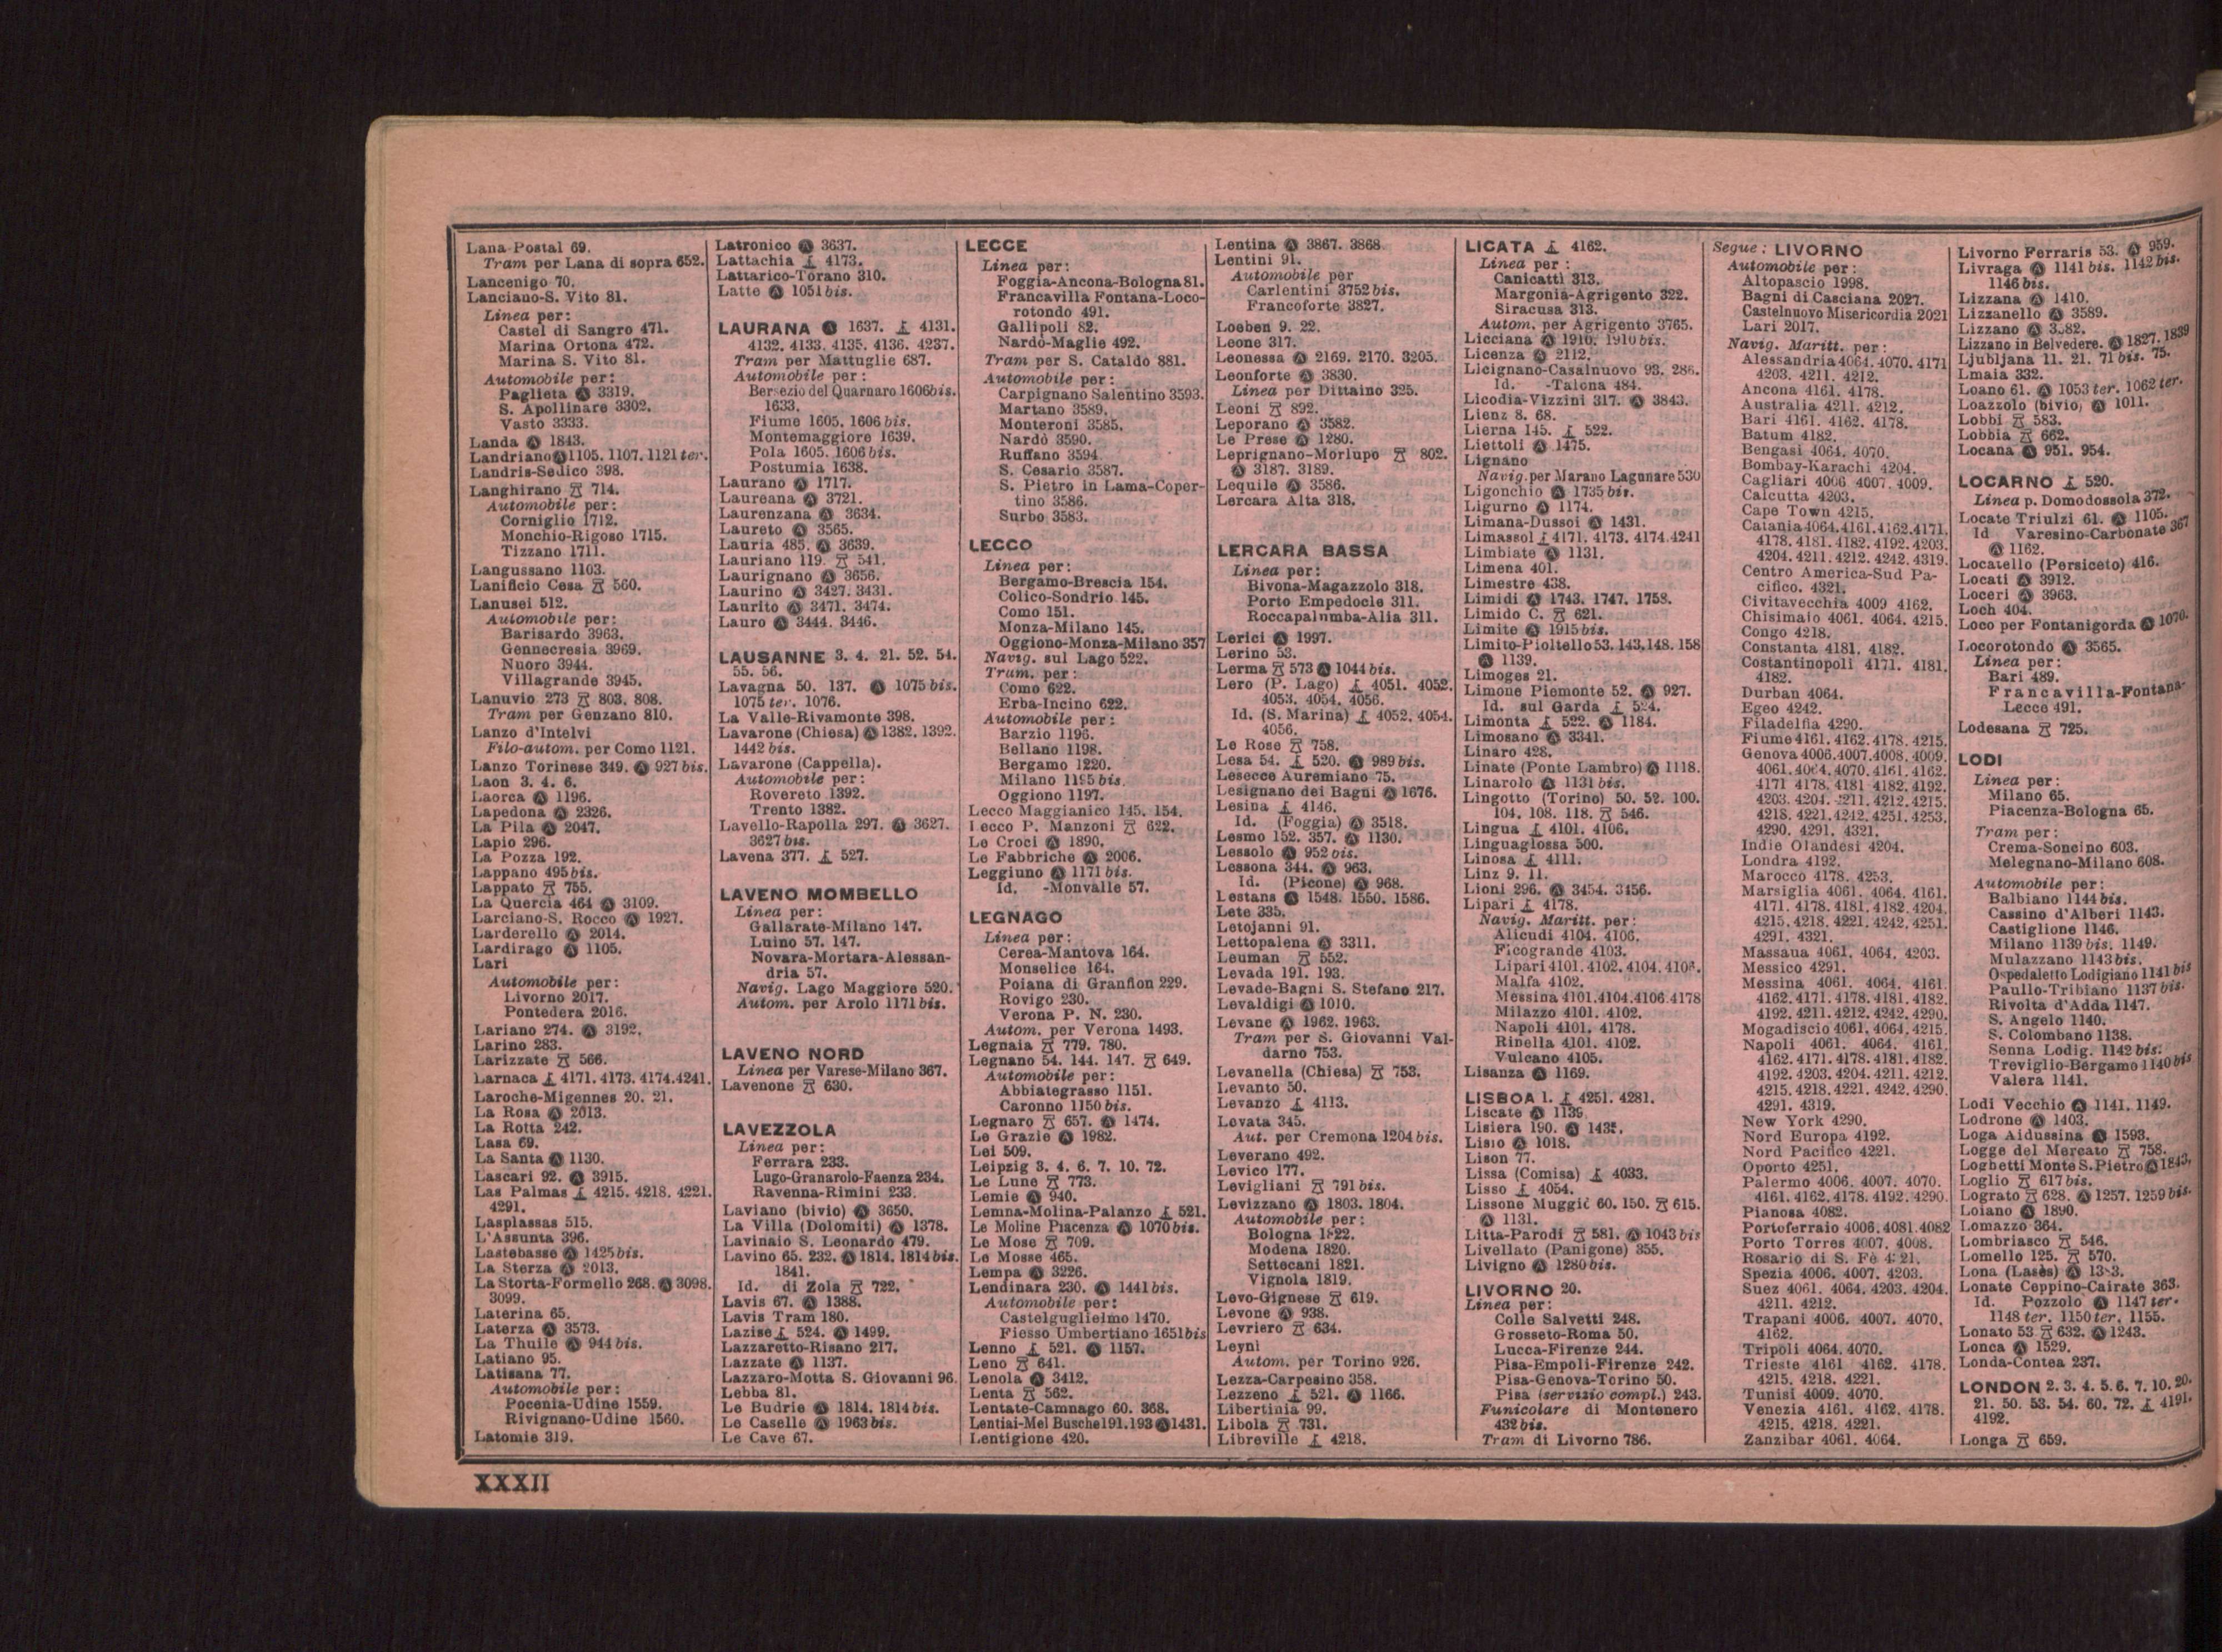 Lana Postal 69.
Tram per Lana di sopra 652.
Lancenigo 70.
Lanciano-S. Vito 81.
Linea per:
Castel di Sangro 471.
Marina Ortona 472.
Marina S. Vito 81.
Automobile per:
Paglieta Ⓐ 3319.
S. Apollinare 3302.
Vasto 3333.
Landa Ⓐ 1843.
Landriano Ⓐ 1105. 1107. 1121 ter.
Landris-Sedico 398.
Langhirano 714.
Automobile per:
Corniglio 1712.
Monchio-Rigoso 1715.
Tizzano 1711.
Langussano 1103.
Lanificio Cesa 560.
Lanusei 512.
Automobile per:
Barisardo 3963.
Gennecresia 3969.
Nuoro 3944.
Villagrande 3945.
Lanuvio 273 803. 808.
Tram per Genzano 810.
Lanzo d'Intelvi
Filo-autom. per Como 1121.
Lanzo Torinese 349. Ⓐ 927 bis.
Laon 3. 4. 6.
Laorca Ⓐ 1196.
Lapedona Ⓐ 2326.
La Pila Ⓐ 2047.
Lapio 296.
La Pozza 192.
Lappano 495 bis.
Lappato 755.
La Quercia 464 Ⓐ 3109.
Larciano-S. Rocco Ⓐ 1927.
Larderello Ⓐ 2014.
Lardirago Ⓐ 1105.
Lari
Automobile per:
Livorno 2017.
Pontedera 2016.
Lariano 274. Ⓐ 3192.
Larino 283.
Larizzate 566.
Larnaca ⚓ 4171. 4173. 4174. 4241.
Laroche-Migennes 20. 21.
La Rosa Ⓐ 2013.
La Rotta 242.
Lasa 69.
La Santa Ⓐ 1130.
Lascari 92. Ⓐ 3915.
Las Palmas ⚓ 4215. 4218. 4221.
4291.
Lasplassas 515.
L'Assunta 396.
Lastebasse Ⓐ 1425 bis.
La Sterza Ⓐ 2013.
La Storta-Formello 268. Ⓐ 3098.
3099.
Laterina 65.
Laterza Ⓐ 3573.
La Thuile Ⓐ 944 bis.
Latiano 95.
Latisana 77.
Automobile per:
Pocenia-Udine 1559.
Rivignano-Udine 1560.
Latomie 319.
Latronico Ⓐ 3637.
Lattachia ⚓ 4173.
Lattarico-Torano 310.
Latte Ⓐ 1051 bis.
LAURANA Ⓐ 1637. ⚓ 4131.
4132. 4133. 4135. 4136. 4237.
Tram per Mattuglie 687.
Automobile per:
Bersezio del Quarnaro 1606 bis.
1633.
Fiume 1605. 1606 bis.
Montemaggiore 1639.
Pola 1605. 1606 bis.
Postumia 1638.
Laurano Ⓐ 1717.
Laureana Ⓐ 3721.
Laurenzana Ⓐ 3634.
Laureto Ⓐ 3565.
Lauria 485. Ⓐ 3639.
Lauriano 119. 541.
Laurignano Ⓐ 3656.
Laurino Ⓐ 3427. 3431.
Laurito Ⓐ 3471. 3474.
Lauro Ⓐ 3444. 3446.
LAUSANNE 3. 4. 21. 52. 54.
55. 56.
Lavagna 50. 137. Ⓐ 1075 bis.
1075 ter. 1076.
La Valle-Rivamonte 398.
Lavarone (Chiesa) Ⓐ 1382. 1392.
1442 bis.
Lavarone (Cappella).
Automobile per:
Rovereto 1392.
Trento 1382.
Lavello-Rapolla 297. Ⓐ 3627.
3627 bis.
Lavena 377. ⚓ 527.
LAVENO MOMBELLO
Linea per:
Gallarate-Milano 147.
Luino 57. 147.
Novara-Mortara-Alessan-
dria 57.
Navig. Lago Maggiore 520.
Autom. per Arolo 1171 bis.
LAVENO NORD
Linea per Varese-Milano 367.
Lavenone 630.
LAVEZZOLA
Linea per:
Ferrara 233.
Lugo-Granarolo-Faenza 234.
Ravenna-Rimini 233.
Laviano (bivio) Ⓐ 3650.
La Villa (Dolomiti) Ⓐ 1378.
Lavinaio S. Leonardo 479.
Lavino 65. 232. Ⓐ 1814. 1814 bis.
1841.
Id. di Zola 722.
Lavis 67. Ⓐ 1388.
Lavis Tram 180.
Lazise ⚓ 524. Ⓐ 1499.
Lazzaretto-Risano 217.
Lazzate Ⓐ 1137.
Lazzaro-Motta S. Giovanni 96.
Lebba 81.
Le Budrie Ⓐ 1814. 1814 bis.
Le Caselle Ⓐ 1963 bis.
Le Cave 67.
LECCE
Linea per:
Foggia-Ancona-Bologna 81.
Francavilla Fontana-Loco-
rotondo 491.
Gallipoli 82.
Nardò-Maglie 492.
Tram per S. Cataldo 881.
Automobile per:
Carpignano Salentino 3593.
Martano 3589.
Monteroni 3585.
Nardò 3590.
Ruffano 3594
S. Cesario 3587.
S. Pietro in Lama-Coper-
tino 3586.
Surbo 3583.
LECCO
Linea per:
Bergamo-Brescia 154.
Colico-Sondrio 145.
Como 151.
Monza-Milano 145.
Oggiono-Monza-Milano 357
Navig. sul Lago 522.
Tram. per:
Como 622.
Erba-Incino 622.
Automobile per:
Barzio 1196.
Bellano 1198.
Bergamo 1220.
Milano 1195 bis.
Oggiono 1197.
Lecco Maggianico 145. 154.
Lecco P. Manzoni 622.
Le Croci Ⓐ 1890.
Le Fabbriche Ⓐ 2006.
Leggiuno Ⓐ 1171 bis.
Id. -Monvalle 57.
LEGNAGO
Linea per:
Cerea-Mantova 164.
Monselice 164.
Poiana di Granfion 229.
Rovigo 230.
Verona P. N. 230.
Autom. per Verona 1493.
Legnaia 779. 780.
Legnano 54. 144. 147. 649.
Automobile per:
Abbiategrasso 1151.
Caronno 1150 bis.
Legnaro 657. Ⓐ 1474.
Le Grazie Ⓐ 1982.
Lei 509.
Leipzig 3. 4. 6. 7. 10. 72.
Le Lune 773.
Lemie Ⓐ 940.
Lemna-Molina-Palanzo ⚓ 521.
Le Moline Piacenza Ⓐ 1070 bis.
Le Mose 709.
Le Mosse 465.
Lempa Ⓐ 3226.
Lendinara 230. Ⓐ 1441 bis.
Automobile per:
Castelguglielmo 1470.
Fiesso Umbertiano 1651 bis
Lenno ⚓ 521. Ⓐ 1157.
Leno 641.
Lenola Ⓐ 3412.
Lenta 562.
Lentate-Camnago 60. 368.
Lentiai-Mel Busche 191. 193 Ⓐ 1431.
Lentigione 420.
Lentina Ⓐ 3867. 3868
Lentini 91.
Automobile per
Carlentini 3752 bis.
Francoforte 3827.
Loeben 9. 22.
Leone 317.
Leonessa Ⓐ 2169. 2170. 3205.
Leonforte Ⓐ 3830.
Linea per Dittaino 325.
Leoni 892.
Leporano Ⓐ 3582.
Le Prese Ⓐ 1280.
Leprignano-Morlupo 802.
Ⓐ 3187. 3189.
Lequile Ⓐ 3586.
Lercara Alta 318.
LERCARA BASSA
Linea per:
Bivona-Magazzolo 318.
Porto Empedocle 311.
Roccapalumba-Alia 311.
Lerici Ⓐ 1997.
Lerino 53.
Lerma 573 Ⓐ 1044 bis.
Lero (P. Lago) ⚓ 4051. 4052.
4053. 4054. 4056.
Id. (S. Marina) ⚓ 4052. 4054.
4056.
Le Rose 758.
Lesa 54. ⚓ 520. Ⓐ 989 bis.
Lesecce Auremiano 75.
Lesignano dei Bagni Ⓐ 1676.
Lesina ⚓ 4146.
Id. (Foggia) Ⓐ 3518.
Lesmo 152. 357. Ⓐ 1130.
Lessolo Ⓐ 952 bis.
Lessona 344. Ⓐ 963.
Id. (Picone) Ⓐ 968.
Lestans Ⓐ 1548. 1550. 1586.
Lete 335.
Letojanni 91.
Lettopalena Ⓐ 3311.
Leuman 552.
Levada 191. 193.
Levade-Bagni S. Stefano 217.
Levaldigi Ⓐ 1010.
Levane Ⓐ 1962. 1963.
Tram per S. Giovanni Val-
darno 753.
Levanella (Chiesa) 753.
Levanto 50.
Levanzo ⚓ 4113.
Levata 345.
Aut. per Cremona 1204 bis.
Leverano 492.
Levico 177.
Levigliani 791 bis.
Levizzano Ⓐ 1803. 1804.
Automobile per:
Bologna 1822.
Modena 1820.
Settecani 1821.
Vignola 1819.
Levo-Gignese 619.
Levone Ⓐ 938.
Levriero 634.
Leyni
Autom. per Torino 926.
Lezza-Carpesino 358.
Lezzeno ⚓ 521. Ⓐ 1166.
Libertinia 99.
Libola 731.
Libreville ⚓ 4218.
LICATA ⚓ 4162.
Linea per:
Canicattì 313.
Margonia-Agrigento 322.
Siracusa 313.
Autom. per Agrigento 3765.
Licciana Ⓐ 1910. 1910 bis.
Licenza Ⓐ 2112.
Licignano-Casalnuovo 93. 286.
Id. -Talona 484.
Licodia-Vizzini 317. Ⓐ 3843.
Lienz 8. 68.
Lierna 145. ⚓ 522.
Liettoli Ⓐ 1475.
Lignano
Navig. per Marano Lagunare 530
Ligonchio Ⓐ 1735 bis.
Ligurno Ⓐ 1174.
Limana-Dussoi Ⓐ 1431.
Limassol ⚓ 4171. 4173. 4174. 4241
Limbiate Ⓐ 1131.
Limena 401.
Limestre 438.
Limidi Ⓐ 1743. 1747. 1758.
Limido C. 621.
Limite Ⓐ 1915 bis.
Limito-Pioltello 53. 143. 148. 158
Ⓐ 1139.
Limoges 21.
Limone Piemonte 52. Ⓐ 927.
Id. sul Garda ⚓ 524.
Limonta ⚓ 522. Ⓐ 1184.
Limosano Ⓐ 3341.
Linaro 428.
Linate (Ponte Lambro) Ⓐ 1118.
Linarolo Ⓐ 1131 bis.
Lingotto (Torino) 50. 52. 100.
104. 108. 118. 546.
Lingua ⚓ 4101. 4106.
Linguaglossa 500.
Linosa ⚓ 4111.
Linz 9. 11.
Lioni 296. Ⓐ 3454. 3456.
Lipari ⚓ 4178.
Navig. Maritt. per:
Alicudi 4104. 4106.
Ficogrande 4103.
Lipari 4101. 4102. 4104. 4106.
Malfa 4102.
Messina 4101. 4104. 4106. 4178
Milazzo 4101. 4102.
Napoli 4101. 4178.
Rinella 4101. 4102.
Vulcano 4105.
Lisanza Ⓐ 1169.
LISBOA 1. ⚓ 4251. 4281.
Liscate Ⓐ 1139.
Lisiera 190. Ⓐ
Lisio Ⓐ 1018.
Lison 77.
Lissa (Comisa) ⚓ 4033.
Lisso ⚓ 4054.
Lissone Muggiò 60. 150. 615.
Ⓐ 1131.
Litta-Parodi 581. Ⓐ 1043 bis
Livellato (Panigone) 355.
Livigno Ⓐ 1280 bis.
LIVORNO 20.
Linea per:
Colle Salvetti 248.
Grosseto-Roma 50.
Lucca-Firenze 244.
Pisa-Empoli-Firenze 242.
Pisa-Genova-Torino 50.
Pisa (servizio compl.) 243.
Funicolare di Montenero
432 bis.
Tram di Livorno 786.
Segue: LIVORNO
Automobile per:
Altopascio 1998.
Bagni di Casciana 2027.
Castelnuovo Misericordia 2021
Lari 2017.
Navig. Maritt. per:
Alessandria 4064. 4070. 4171
4203. 4211. 4212.
Ancona 4161. 4178.
Australia 4211. 4212.
Bari 4161. 4162. 4178.
Batum 4182.
Bengasi 4064. 4070.
Bombay-Karachi 4204.
Cagliari 4006 4007. 4009.
Calcutta 4203.
Cape Town 4215.
Catania 4064. 4161. 4162. 4171.
4178. 4181. 4182. 4192. 4203.
4204. 4211. 4212. 4242. 4319.
Centro America-Sud Pa-
cifico. 4321.
Civitavecchia 4009 4162.
Chisimaio 4061. 4064. 4215.
Congo 4218.
Constanta 4181. 4182.
Costantinopoli 4171. 4181.
4182.
Durban 4064.
Egeo 4242.
Filadelfia 4290.
Fiume 4161. 4162. 4178. 4215.
Genova 4006. 4007. 4008. 4009.
4061. 4064. 4070. 4161. 4162.
4171 4178. 4181 4182. 4192.
4203. 4204. 4211. 4212. 4215.
4218. 4221. 4242. 4251. 4253.
4290. 4291. 4321.
Indie Olandesi 4204.
Londra 4192.
Marocco 4178. 4253.
Marsiglia 4061. 4064. 4161.
4171. 4178. 4181. 4182. 4204.
4215. 4218. 4221. 4242. 4251.
4291. 4321.
Massaua 4061. 4064. 4203.
Messico 4291.
Messina 4061. 4064. 4161.
4162. 4171. 4178. 4181. 4182.
4192. 4211. 4212. 4242. 4290.
Mogadiscio 4061. 4064. 4215.
Napoli 4061. 4064. 4161.
4162. 4171. 4178. 4181. 4182.
4192. 4203. 4204. 4211. 4212.
4215. 4218. 4221. 4242. 4290.
4291. 4319.
New York 4290.
Nord Europa 4192.
Nord Pacifico 4221.
Oporto 4251.
Palermo 4006. 4007. 4070.
4161. 4162. 4178. 4192. 4290.
Pianosa 4082.
Portoferraio 4006. 4081. 4082
Porto Torres 4007. 4008.
Rosario di S. Fè
Spezia 4006. 4007. 4203.
Suez 4061. 4064. 4203. 4204.
4211. 4212.
Trapani 4006. 4007. 4070.
4162.
Tripoli 4064. 4070.
Trieste 4161 4162. 4178.
4215. 4218. 4221.
Tunisi 4009. 4070.
Venezia 4161. 4162. 4178.
4215. 4218. 4221.
Zanzibar 4061. 4064.
Livorno Ferraris 53. Ⓐ 959.
Livraga Ⓐ 1141 bis. 1142 bis.
1146 bis.
Lizzana Ⓐ 1410.
Lizzanello Ⓐ 3589.
Lizzano Ⓐ
Lizzano in Belvedere. Ⓐ 1827. 1839
Ljubljana 11. 21. 71 bis. 75.
Lmaia 332.
Loano 61. Ⓐ 1053 ter. 1062 ter.
Loazzolo (bivio) Ⓐ 1011.
Lobbi 583.
Lobbia 662.
Locana Ⓐ 951. 954.
LOCARNO ⚓ 520.
Linea p. Domodossola 372.
Locate Triulzi 61. Ⓐ 1105.
Id Varesino-Carbonate 367
Ⓐ 1162.
Locatello (Persiceto) 416.
Locati Ⓐ 3912.
Loceri Ⓐ 3963.
Loch 404.
Loco per Fontanigorda Ⓐ 1070.
Locorotondo Ⓐ 3565.
Linea per:
Bari 489.
Francavilla-Fontana-
Lecce 491.
Lodesana 725.
LODI
Linea per:
Milano 65.
Piacenza-Bologna 65.
Tram per:
Crema-Soncino 603.
Melegnano-Milano 608.
Automobile per:
Balbiano 1144 bis.
Cassino d'Alberi 1143.
Castiglione 1146.
Milano 1139 bis. 1149.
Mulazzano 1143 bis.
Ospedaletto Lodigiano 1141 bis
Paullo-Tribiano 1137 bis.
Rivolta d'Adda 1147.
S. Angelo 1140.
S. Colombano 1138.
Senna Lodig. 1142 bis.
Treviglio-Bergamo 1140 bis
Valera 1141.
Lodi Vecchio Ⓐ 1141. 1149.
Lodrone Ⓐ 1403.
Loga Aidussina Ⓐ 1593.
Logge del Mercato 758.
Loghetti Monte S. Pietro Ⓐ 1843.
Loglio 617 bis.
Lograto 628. Ⓐ 1257. 1259 bis.
Loiano Ⓐ 1890.
Lomazzo 364.
Lombriasco 546.
Lomello 125. 570.
Lona (Lasès) Ⓐ
Lonate Ceppino-Cairate 363.
Id. Pozzolo Ⓐ 1147 ter.
1148 ter. 1150 ter. 1155.
Lonato 53 632. Ⓐ 1243.
Lonca Ⓐ 1529.
Londa-Contea 237.
LONDON 2. 3. 4. 5. 6. 7. 10. 20.
21. 50. 53. 54. 60. 72. ⚓ 4191.
4192.
Longa 659.
XXXII